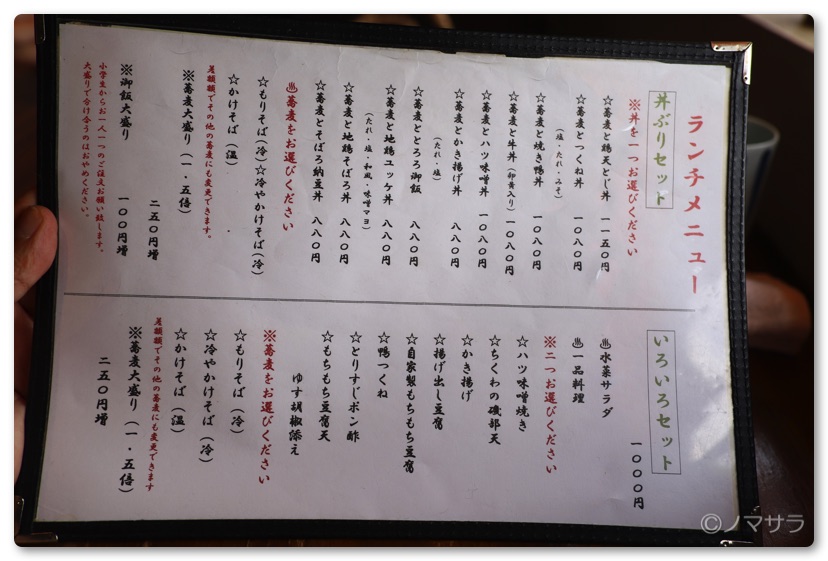 ランチメニュー
丼ぶりセット
※丼を一つお選びください
☆蕎麦と鶏天とじ丼 一一五〇円
☆蕎麦とつくね丼 一〇八〇円
(塩・たれ・みそ)
☆蕎麦と焼き鴨丼 一〇八〇円
☆蕎麦と牛丼(卵黄入り)一〇八〇円
☆蕎麦とハツ味噌丼 一〇八〇円
☆蕎麦とかき揚げ丼 八八〇円
(たれ・塩)
☆蕎麦ととろろ御飯 八八〇円
☆蕎麦と地鶏ユッケ丼 八八〇円
(たれ・塩・和風・味噌マヨ)
☆蕎麦と地鶏そぼろ丼 八八〇円
☆蕎麦とそぼろ納豆丼 八八〇円
♨蕎麦をお選びください
☆もりそば(冷)☆冷やかけそば(冷)
☆かけそば(温)
差額額でその他の蕎麦にも変更できます。
※蕎麦大盛り(一・五倍)
二五〇円増
※御飯大盛り 一〇〇円増
小学生からお一人一つのご注文お願い致します。
大盛りで分け合うのはおやめください。
いろいろセット
一〇〇〇円
♨水菜サラダ
♨一品料理
※二つお選びください
☆ハツ味噌焼き
☆ちくわの磯部天
☆かき揚げ
☆揚げ出し豆腐
☆自家製もちもち豆腐
☆とりすじポン酢
☆鴨つくね
☆もちもち豆腐天
ゆず胡椒添え
※蕎麦をお選びください
☆もりそば(冷)
☆冷やかけそば(冷)
☆かけそば(温)
差額額でその他の蕎麦にも変更できます
※蕎麦大盛り(一・五倍)
二五〇円増
©ノマサラ